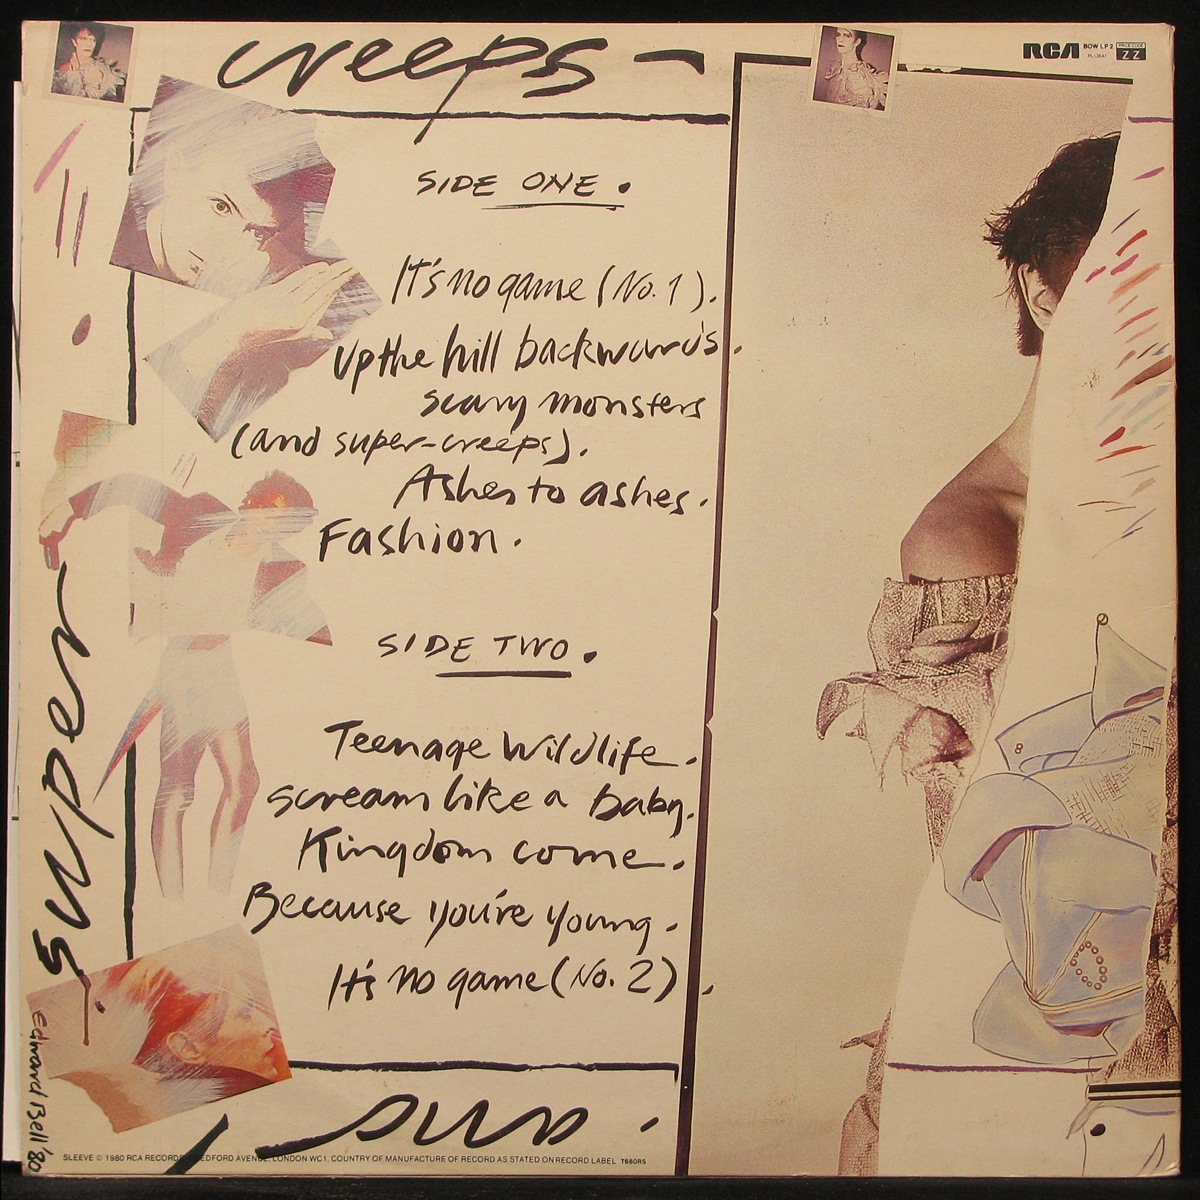 creeps-
RCA BOW LP 2
PL13647
PRICE CODE
ZZ
SIDE ONE.
It's no game (No. 1).
Up the hill backwards.
scary monsters
(and super-creeps).
Ashes to ashes.
Fashion.
SIDE TWO.
Teenage Wildlife.
scream like a baby.
Kingdom come.
Because you're young.
It's no game (No. 2).
super
and.
Edward Bell '80
SLEEVE © 1980 RCA RECORDS, BEDFORD AVENUE, LONDON WC1. COUNTRY OF MANUFACTURE OF RECORD AS STATED ON RECORD LABEL T680RS